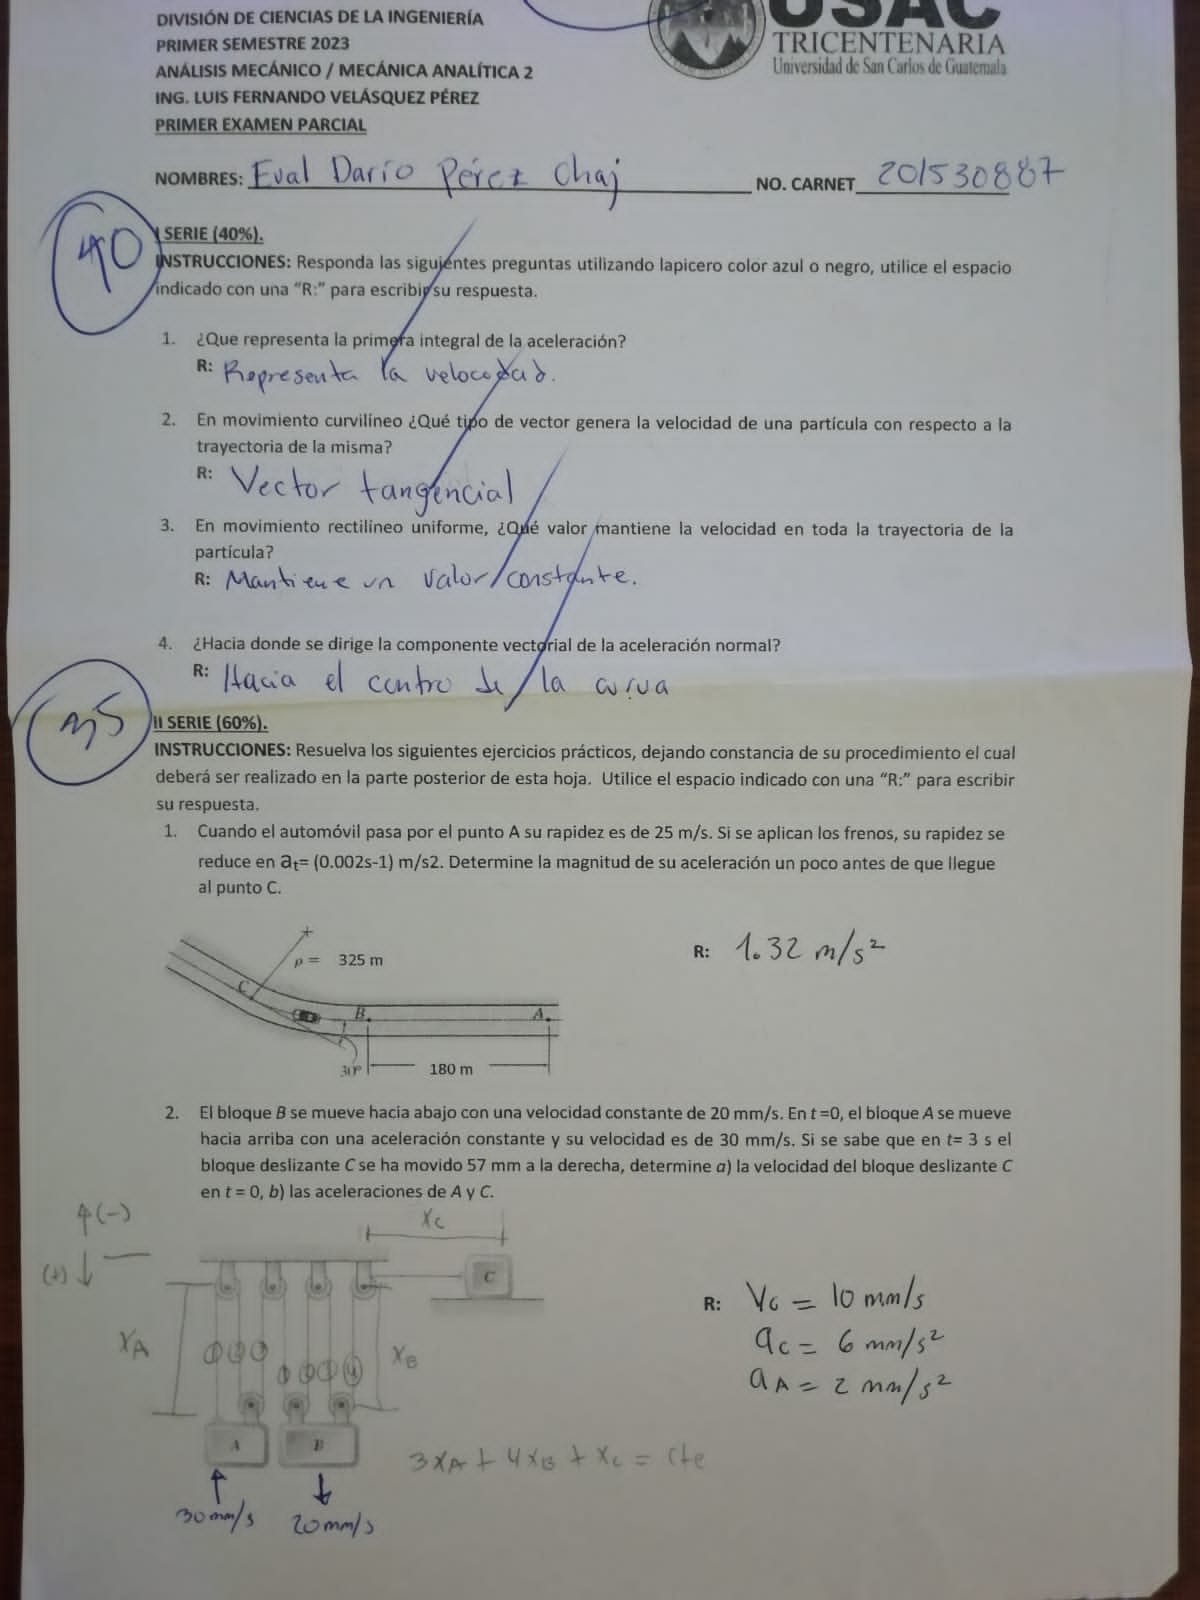 DIVISIÓN DE CIENCIAS DE LA INGENIERÍA
PRIMER SEMESTRE 2023
ANÁLISIS MECÁNICO / MECÁNICA ANALÍTICA 2
ING. LUIS FERNANDO VELÁSQUEZ PÉREZ
PRIMER EXAMEN PARCIAL
USAC
TRICENTENARIA
Universidad de San Carlos de Guatemala
NOMBRES: Eval Darío Pérez Chaj NO. CARNET 201530887
40
I SERIE (40%).
INSTRUCCIONES: Responda las siguientes preguntas utilizando lapicero color azul o negro, utilice el espacio
indicado con una "R:" para escribir su respuesta.
1. ¿Que representa la primera integral de la aceleración?
R: Representa la velocidad.
2. En movimiento curvilíneo ¿Qué tipo de vector genera la velocidad de una partícula con respecto a la
trayectoria de la misma?
R: Vector tangencial
3. En movimiento rectilíneo uniforme, ¿Qué valor mantiene la velocidad en toda la trayectoria de la
partícula?
R: Mantiene un valor constante.
4. ¿Hacia donde se dirige la componente vectorial de la aceleración normal?
R: Hacia el centro de la curva
35
II SERIE (60%).
INSTRUCCIONES: Resuelva los siguientes ejercicios prácticos, dejando constancia de su procedimiento el cual
deberá ser realizado en la parte posterior de esta hoja. Utilice el espacio indicado con una "R:" para escribir
su respuesta.
1. Cuando el automóvil pasa por el punto A su rapidez es de 25 m/s. Si se aplican los frenos, su rapidez se
reduce en at= (0.002s-1) m/s2. Determine la magnitud de su aceleración un poco antes de que llegue
al punto C.
R: 1.32 m/s²
ρ = 325 m
C
B
A
30°
180 m
2. El bloque B se mueve hacia abajo con una velocidad constante de 20 mm/s. En t =0, el bloque A se mueve
hacia arriba con una aceleración constante y su velocidad es de 30 mm/s. Si se sabe que en t= 3 s el
bloque deslizante C se ha movido 57 mm a la derecha, determine a) la velocidad del bloque deslizante C
en t = 0, b) las aceleraciones de A y C.
↑(-)
(+)↓
xc
C
xA
① ② ③
① ② ③ ④
xB
A
B
R: Vc = 10 mm/s
ac = 6 mm/s²
aA = 2 mm/s²
3xA + 4xB + xc = cte
30 mm/s
20 mm/s